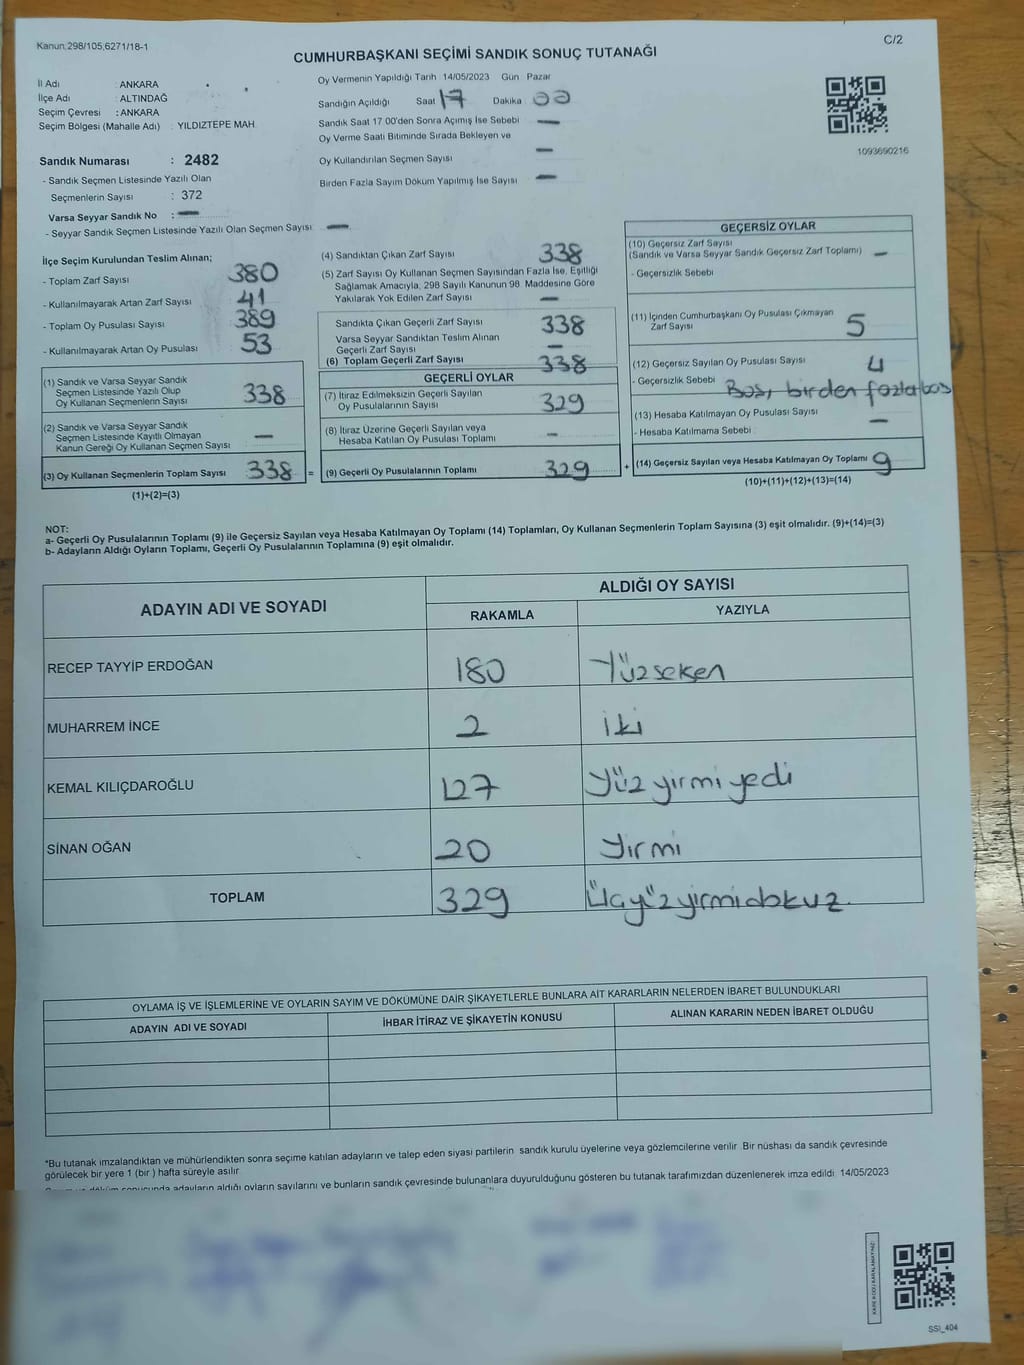 Kanun:298/105;6271/18-1
C/2
CUMHURBAŞKANI SEÇİMİ SANDIK SONUÇ TUTANAĞI
İl Adı : ANKARA
İlçe Adı : ALTINDAĞ
Seçim Çevresi : ANKARA
Seçim Bölgesi (Mahalle Adı) : YILDIZTEPE MAH.
Oy Vermenin Yapıldığı Tarih 14/05/2023 Gün Pazar
Sandığın Açıldığı Saat 17 Dakika 00
Sandık Saat 17.00'den Sonra Açımış İse Sebebi —
Oy Verme Saati Bitiminde Sırada Bekleyen ve
Oy Kullandırılan Seçmen Sayısı —
Birden Fazla Sayım Döküm Yapılmış İse Sayısı —
1093690216
Sandık Numarası : 2482
- Sandık Seçmen Listesinde Yazılı Olan
Seçmenlerin Sayısı : 372
Varsa Seyyar Sandık No : —
- Seyyar Sandık Seçmen Listesinde Yazılı Olan Seçmen Sayısı —
İlçe Seçim Kurulundan Teslim Alınan;
- Toplam Zarf Sayısı 380
- Kullanılmayarak Artan Zarf Sayısı 41
- Toplam Oy Pusulası Sayısı 389
- Kullanılmayarak Artan Oy Pusulası 53
(1) Sandık ve Varsa Seyyar Sandık
Seçmen Listesinde Yazılı Olup
Oy Kullanan Seçmenlerin Sayısı 338
(2) Sandık ve Varsa Seyyar Sandık
Seçmen Listesinde Kayıtlı Olmayan
Kanun Gereği Oy Kullanan Seçmen Sayısı —
(3) Oy Kullanan Seçmenlerin Toplam Sayısı 338 =
(1)+(2)=(3)
(4) Sandıktan Çıkan Zarf Sayısı 338
(5) Zarf Sayısı Oy Kullanan Seçmen Sayısından Fazla İse, Eşitliği
Sağlamak Amacıyla, 298 Sayılı Kanunun 98. Maddesine Göre
Yakılarak Yok Edilen Zarf Sayısı —
Sandıkta Çıkan Geçerli Zarf Sayısı 338
Varsa Seyyar Sandıktan Teslim Alınan
Geçerli Zarf Sayısı —
(6) Toplam Geçerli Zarf Sayısı 338
GEÇERLİ OYLAR
(7) İtiraz Edilmeksizin Geçerli Sayılan
Oy Pusulalarının Sayısı 329
(8) İtiraz Üzerine Geçerli Sayılan veya
Hesaba Katılan Oy Pusulası Toplamı —
(9) Geçerli Oy Pusulalarının Toplamı 329 +
GEÇERSİZ OYLAR
(10) Geçersiz Zarf Sayısı
(Sandık ve Varsa Seyyar Sandık Geçersiz Zarf Toplamı) —
- Geçersizlik Sebebi
(11) İçinden Cumhurbaşkanı Oy Pusulası Çıkmayan
Zarf Sayısı 5
(12) Geçersiz Sayılan Oy Pusulası Sayısı 4
- Geçersizlik Sebebi Boş, birden fazla bas
(13) Hesaba Katılmayan Oy Pusulası Sayısı —
- Hesaba Katılmama Sebebi
(14) Geçersiz Sayılan veya Hesaba Katılmayan Oy Toplamı 9
(10)+(11)+(12)+(13)=(14)
NOT:
a- Geçerli Oy Pusulalarının Toplamı (9) ile Geçersiz Sayılan veya Hesaba Katılmayan Oy Toplamı (14) Toplamları, Oy Kullanan Seçmenlerin Toplam Sayısına (3) eşit olmalıdır. (9)+(14)=(3)
b- Adayların Aldığı Oyların Toplamı, Geçerli Oy Pusulalarının Toplamına (9) eşit olmalıdır.
ADAYIN ADI VE SOYADI
ALDIĞI OY SAYISI
RAKAMLA YAZIYLA
RECEP TAYYİP ERDOĞAN 180 Yüzseksen
MUHARREM İNCE 2 iki
KEMAL KILIÇDAROĞLU 127 Yüz yirmi yedi
SİNAN OĞAN 20 Yirmi
TOPLAM 329 Üçyüz yirmidokuz.
OYLAMA İŞ VE İŞLEMLERİNE VE OYLARIN SAYIM VE DÖKÜMÜNE DAİR ŞİKAYETLERLE BUNLARA AİT KARARLARIN NELERDEN İBARET BULUNDUKLARI
ADAYIN ADI VE SOYADI İHBAR İTİRAZ VE ŞİKAYETİN KONUSU ALINAN KARARIN NEDEN İBARET OLDUĞU
*Bu tutanak imzalandıktan ve mühürlendikten sonra seçime katılan adayların ve talep eden siyasi partilerin sandık kurulu üyelerine veya gözlemcilerine verilir. Bir nüshası da sandık çevresinde
görülecek bir yere 1 (bir ) hafta süreyle asılır.
sonucunda adayların aldığı oyların sayılarını ve bunların sandık çevresinde bulunanlara duyurulduğunu gösteren bu tutanak tarafımızdan düzenlenerek imza edildi. 14/05/2023
KARE KODU KARALAMAYINIZ!
SSI_404